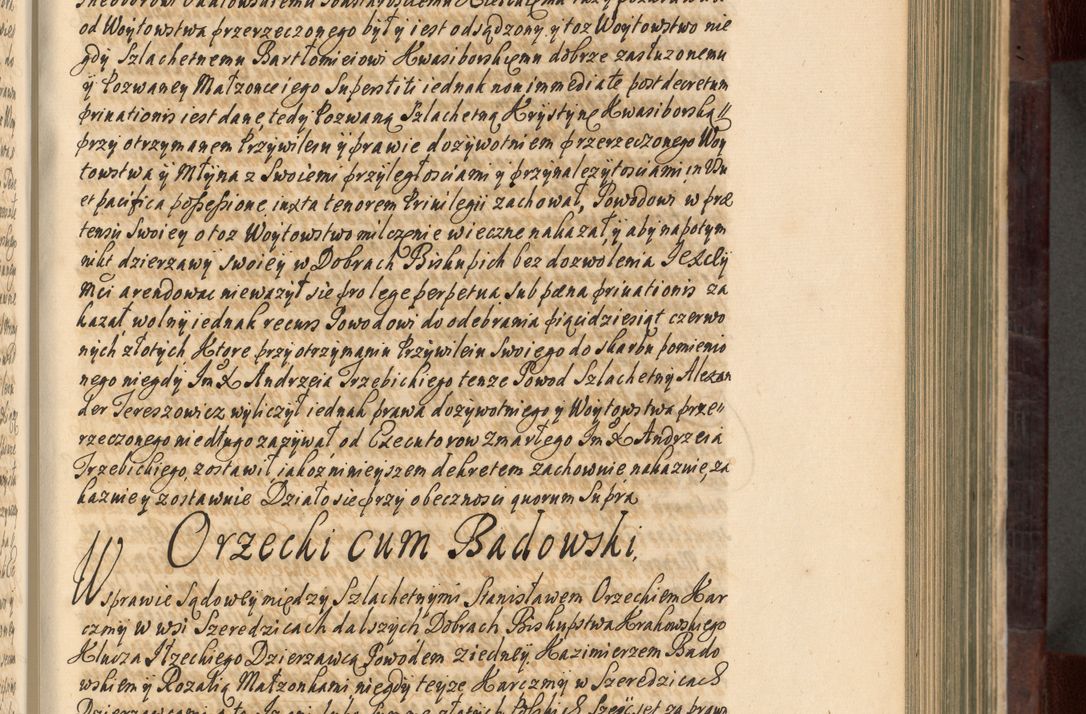 od Woytowstwa przerzeczonego były iest odsądzony y toz Woytowstwo nie
gdy Szlachetnemu Bartłomieiowi Kwasiborskiemu dobrze zasłuzonemu
y Pozwaney Małzonce iego Superstiti iednak non immediate post decretum
priuationis iest dane, tedy Pozwaną Szlachetną Krystynę Kwasiborską
przy otrzymanem Przywileiu y prawie dozywotniem przerzeczonego Woy
towstwa y Młyna z Swoiemi przyległosciami y przynalezytosciami in Vsu
et pacifica possessione iuxta tenorem Priuilegii zachował, Powodowi w præ
tensii Swoiey o toz Woytowstwo milczenie wieczne nakazał y aby napotym
nikt dzierzawy swoiey w Dobrach Biskupich bez dozwolenia
Mci arendowac niewazył sie pro lege perpetua sub pœna priuationis za
kazał wolny iednak recurs Powodowi do odebrania pięcidziesiąt czerwo
nych złotych Ktore przy otrzymaniu Przywileiu Swoiego do skarbu pomienio
nego niegdy Im X Andrzeia Trzebickiego tenze Powod Szlachetny Alexan
der Tereszowicz wyliczył iednak prawa dozywotniego y Woytowstwa prze
rzeczonego niedługo zazywał od Executorow Zmarłego Im X Andrzeia
Trzebickiego, zostawił iakoz ninieyszem dekretem zachownie nakazuie, za
kazuie y zostawuie Działo sie przy obecznosci quorum Supra
Orzecki cum Badowski,
W sprawie Sądowey między Szlachetnymi Stanisławem Orzeckiem Kar
czmy w wsi Szeredzicach dalszych Dobrach Biskupstwa Krakowskiego
Klucza Iłzeckiego Dzierzawcą Powodem z iedney, Kazimierzem Bado
wskiem y Rozalią Małzonkami niegdy teyze Karczmy w Szeredzicach